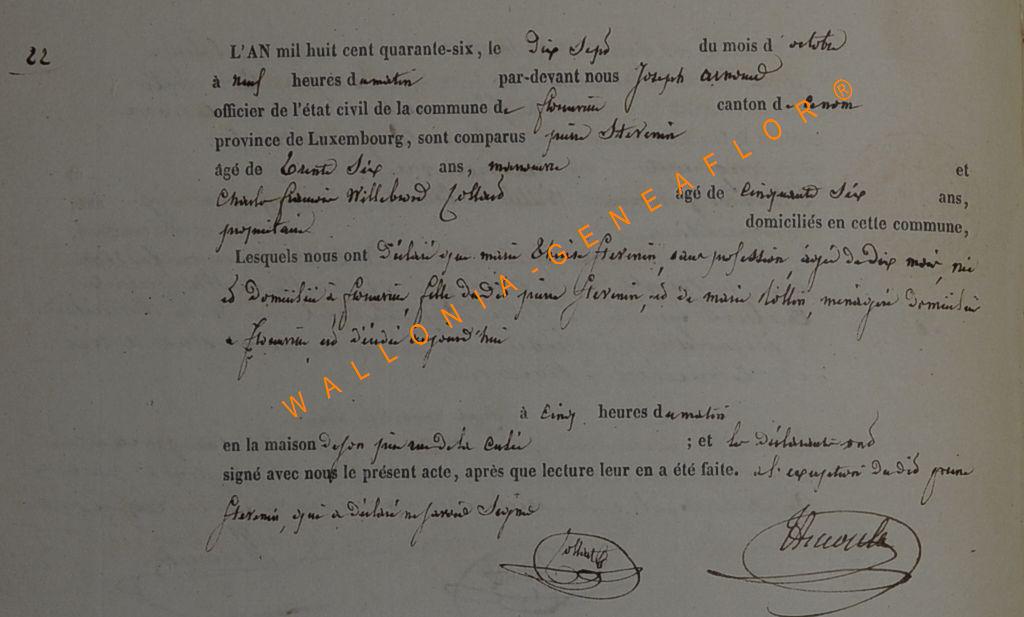 22
L'AN mil huit cent quarante-six, le Dix Sept du mois d'octobre
à neuf heures du matin par-devant nous Joseph Arnould
officier de l'état civil de la commune de florenville canton d
province de Luxembourg, sont comparus pierre Stevenin
âgé de trente Six ans, manoeuvre et
Charles françois Willebrord Collard âgé de cinquante Six ans,
propriétaire domiciliés en cette commune,
Lesquels nous ont Déclaré que marie Stevenin, sans profession, âgée de dix mois, née
et Domiciliée à florenville, fille dudit pierre Stevenin, et de marie, ménagère Domiciliée
à florenville, est décédée aujourd'hui
à Cinq heures du matin
en la maison de son père rue de la ; et les déclarants ont
signé avec nous le présent acte, après que lecture leur en a été faite. à l'exception dudit pierre
Stevenin, qui a déclaré ne savoir Signer
WALLONIA-GENEAFLOR ®